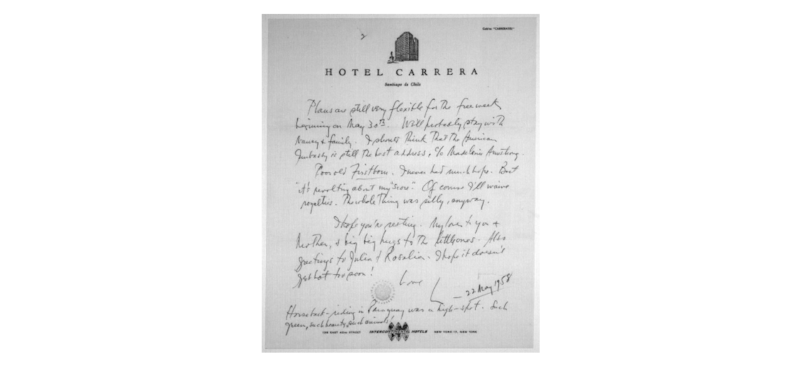 Cable: "CARRERAO"
HOTEL CARRERA
Santiago de Chile
Plans are still very flexible for the free week
beginning on May 30th. Will probably stay with
Nancy & family. I should think that the American
Embassy is still the best address, c/o Madeleine
Poor old Firstborn. I never had much hope. But
about my " Of course I'll waive
royalties. The whole thing was silly, anyway.
I hope you're resting. My love to you &
Mother, & big big hugs to the little ones. Also
greetings to Julia & Rosalia. I hope it doesn't
get hot too soon!
Love
L
22 May 1958
Horseback-riding in Paraguay was a high-spot. Such
green, such
INTERCONTINENTAL HOTELS
NEW YORK 17, NEW YORK